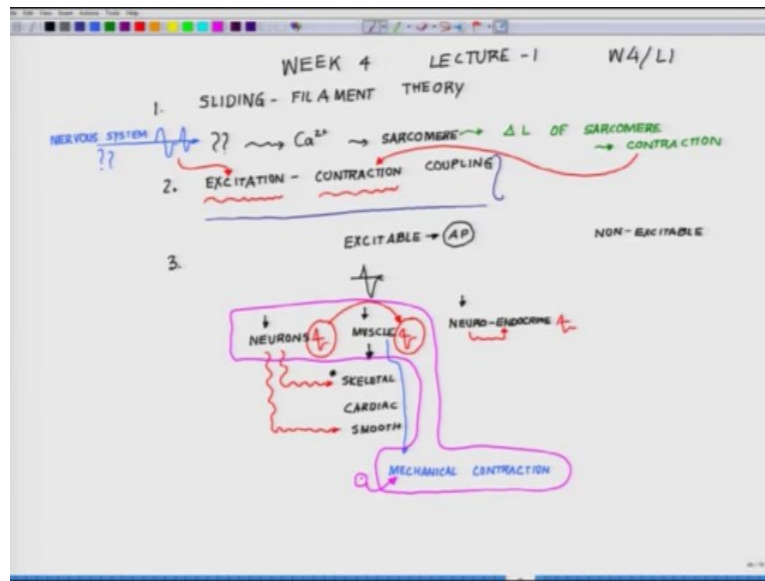 WEEK 4 LECTURE -1 W4/L1
1. SLIDING - FILAMENT THEORY
NERVOUS SYSTEM ?? Ca2+ SARCOMERE Δ L OF SARCOMERE
?? CONTRACTION
2. EXCITATION - CONTRACTION COUPLING
EXCITABLE → AP NON-EXCITABLE
3.
NEURONS MUSCLE NEURO-ENDOCRINE
* SKELETAL
CARDIAC
SMOOTH
MECHANICAL CONTRACTION